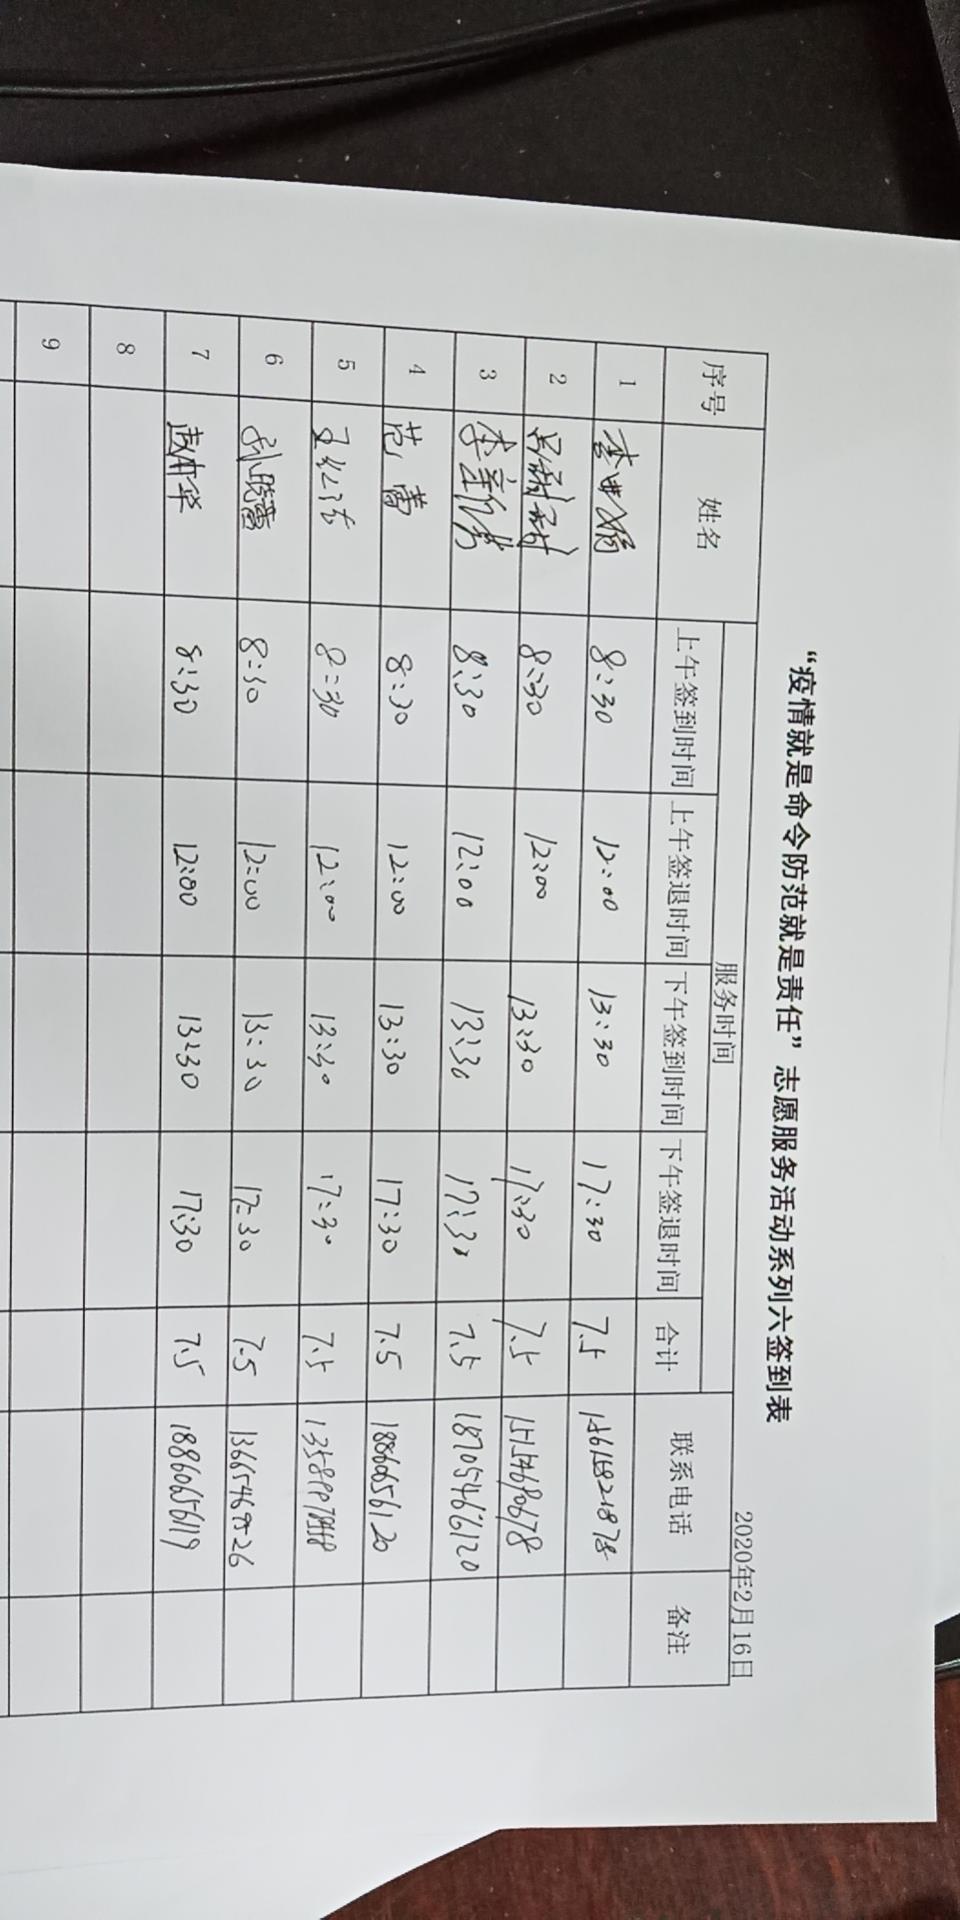 “疫情就是命令防范就是责任”志愿服务活动系列六签到表
2020年2月16日
序号 姓名 服务时间 联系电话 备注
上午签到时间 上午签退时间 下午签到时间 下午签退时间 合计
1 8:30 12:00 13:30 17:30 7.5
2 8:30 12:00 13:30 17:30 7.5
3 8:30 12:00 13:30 17:30 7.5 18705466120
4 范蕾 8:30 12:00 13:30 17:30 7.5 18860656120
5 8:30 12:00 13:30 17:30 7.5
6 孙晓蕾 8:30 12:00 13:30 17:30 7.5 13665469526
7 赵冉华 8:30 12:00 13:30 17:30 7.5 18860656119
8
9